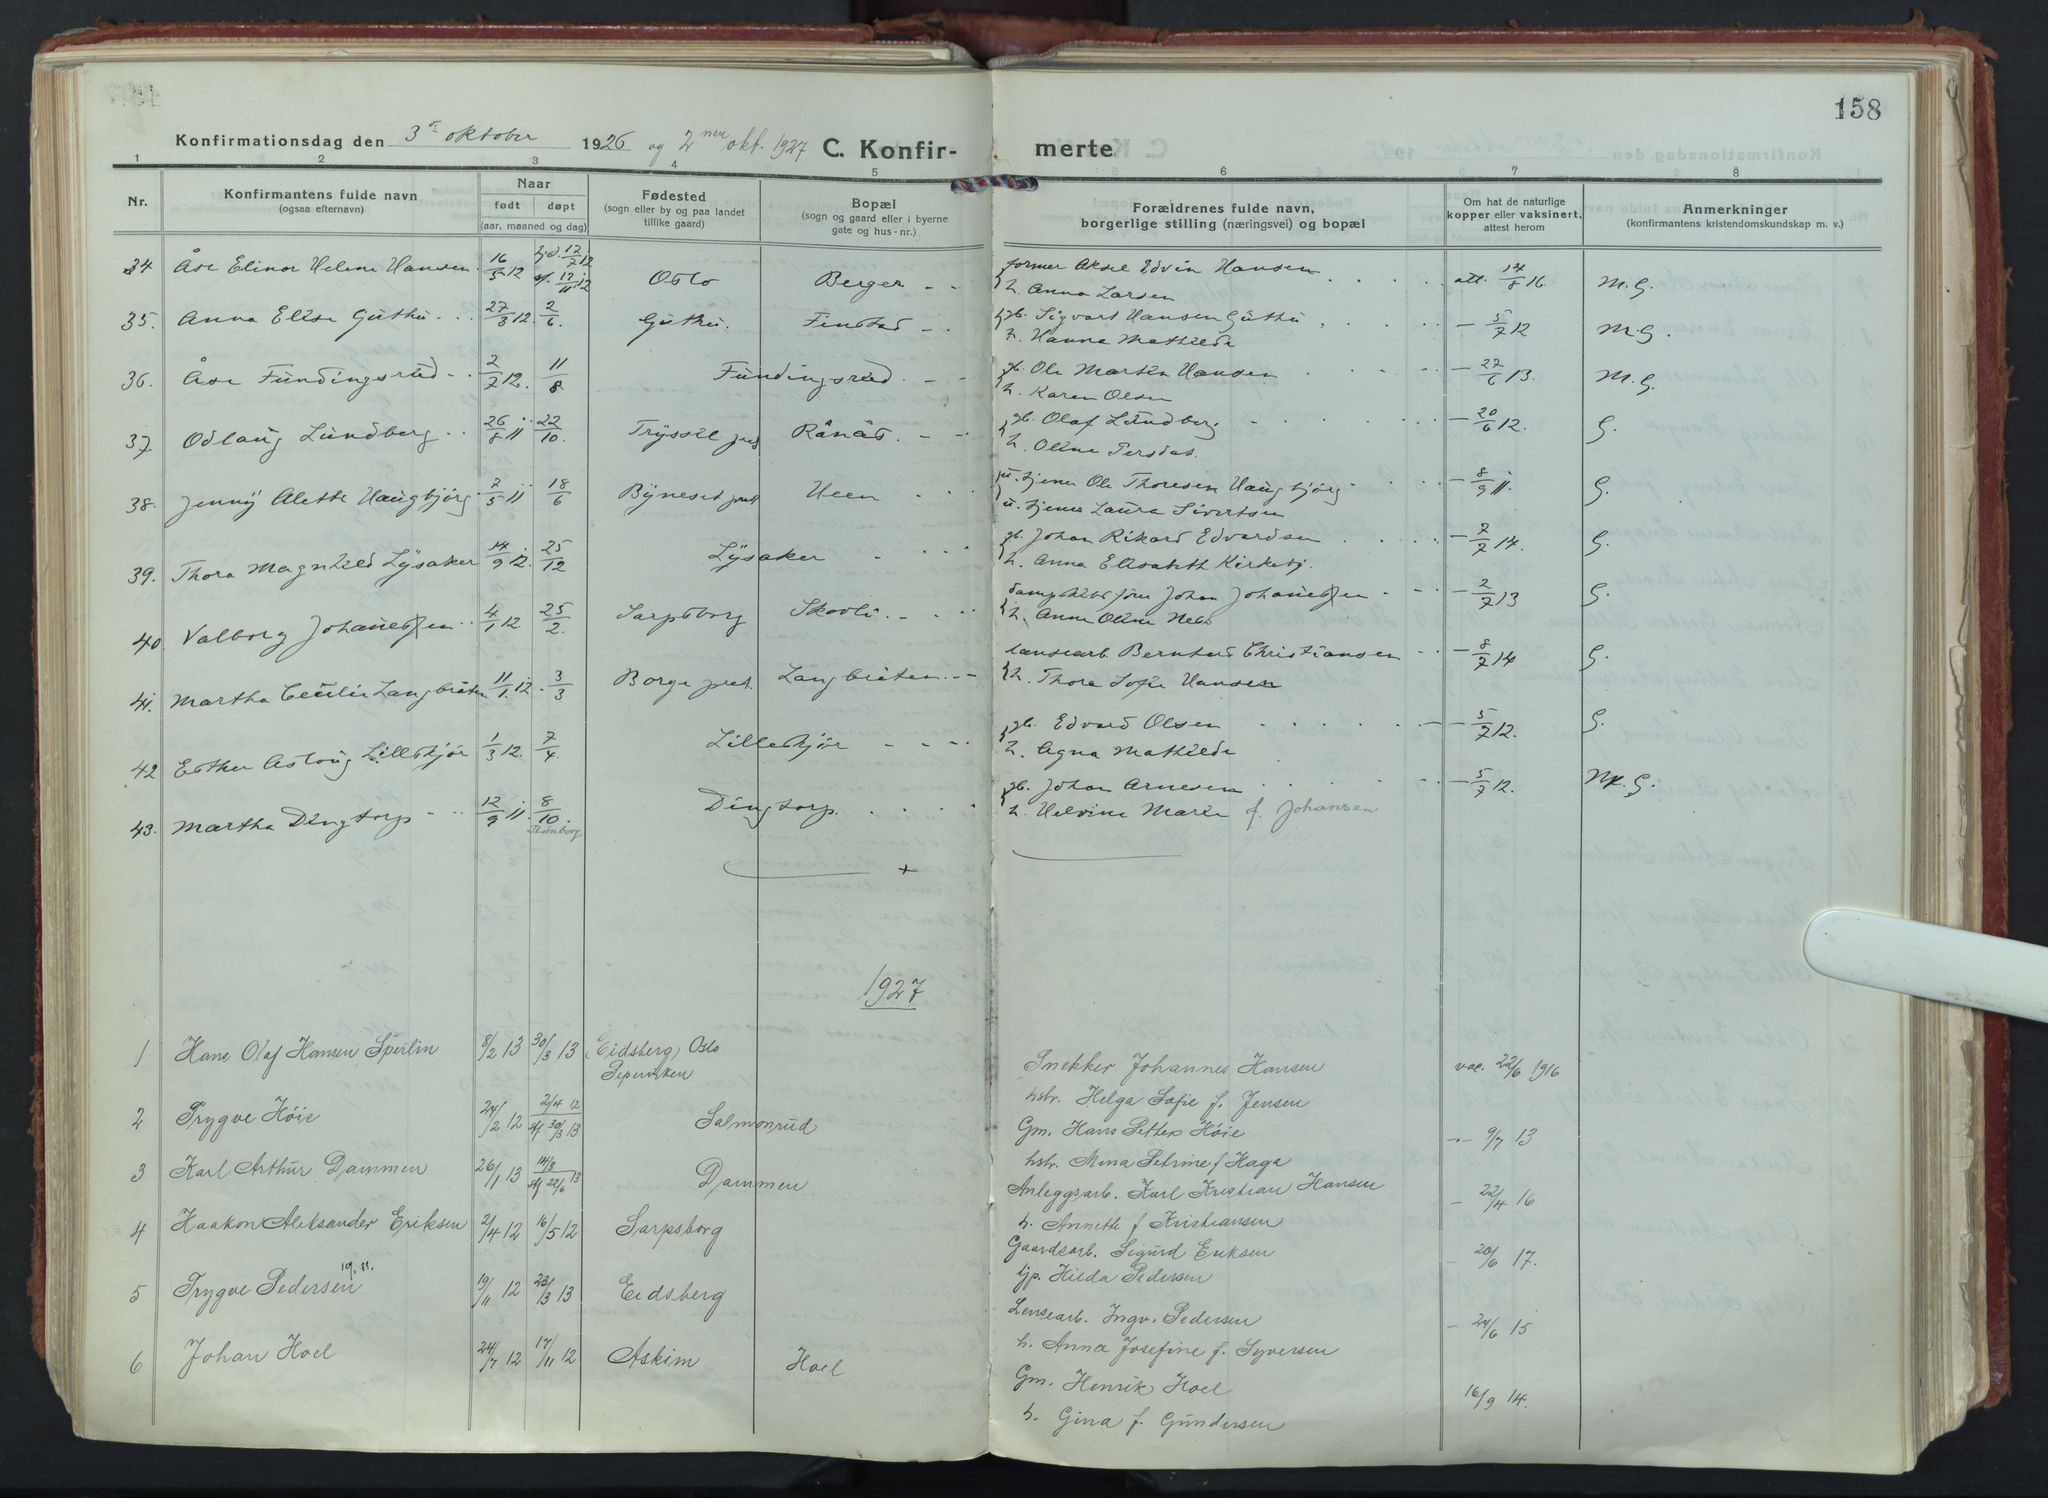 158
Konfirmationsdag den 3die oktober 1926 og 2nen okt. 1927 C. Konfir- merte
1 2 3 4 5 6 7 8
Nr. Konfirmantens fulde navn (ogsaa efternavn) Naar født døpt (aar, maaned og dag) Fødested (sogn eller by og paa landet tillike gaard) Bopæl (sogn og gaard eller i byerne gate og hus-nr.) Forældrenes fulde navn, borgerlige stilling (næringsvei) og bopæl Om hat de naturlige kopper eller vaksinert, attest herom Anmerkninger (konfirmantens kristendomskundskap m. v.)
34 Åse Elinor Helene Hansen 16/5 12 hjd. 17/7 12 Oslo Berger former Aksel Edvin Hansen att. 14/8 16 M.G.
st. 17/11 12 h. Anna Larsen
35. Anna Elise Guthu 27/3 12. 2/6. Guthu. Finstad gb. Sigvart Hansen Guthu 5/7 12 M.G.
h. Hanna Mathilde
36. Åse Fundingsrud 2/7 12. 11/8 Fundingsrud gb. Ole Martin Hansen 27/6 13. M.G.
h. Karen Olsen
37. Odlaug Lundberg 26/8 11 22/10. Tryssil prest Rånås gb. Olaf Lundberg 20/6 12. G.
h. Oline Persdat.
38. Jenny Alette Haugbjørg 7/5 11 18/6 Byneset prest Heen u. tjener Ole Thoresen Haugbjørg 8/9 11. G.
u. tjener Laura Sivertsen
39. Thora Magnhild Lysaker 14/9 12. 25/12 Lysaker gb. Johan Rikard Edvardsen 7/7 14. G.
h. Anna Elisabeth Kirkeby.
40. Valborg Johannessen 4/1 12. 25/2. Sarpsborg Skovli Johan Johannessen 2/7 13 G.
h. Anne Oline
41. Martha Cecilie Langbråten 11/1 12. 3/3 Borge prest. Langbråten lænsearb. Bernhard Christiansen 8/7 14 G.
h. Thora Sofie Hansen
42 Esther Aslaug Lilleskjør 1/3 12. 7/4 Lilleskjør gb. Edvard Olsen 5/7 12. G.
h. Agna Mathilde
43. Martha Dingtorp 12/9 11. 8/10. Dingtorp. gb. Johan Arnesen 5/7 12. M.G.
h. Helvine Marie f. Johansen
1927
1 Hans Olaf Hansen Sperlin 8/2 13 30/3 13 (Eidsberg) Oslo Snekker Johannes Hansen vac. 22/6 1916
Piperviken hstr. Helga Sofie f. Jensen
2 Trygve Høie 24/2 12 2/4 12 Salmonrud Gm. Hans Petter Høie 9/7 13
stf 30/3 13 hstr. Mina Petrine f Haga
3 Karl Arthur Dammen 26/1 13 14/3 Dammen Anleggsarb. Karl Kristian Hansen 22/4 16
stf 22/6 13 h. Annette f Kristiansen
4 Haakon Aleksander Eriksen 2/4 12 16/5 12 Sarpsborg Gaardsarb. Sigurd Eriksen 20/6 17.
tjp. Hilda Pedersen
5 Trygve Pedersen 19/11 12 23/3 13 Eidsberg Lensearb. Ingv. Pedersen 24/6 15
h. Anna Josefine f. Syversen
6 Johan Hoel 24/7 12 17/11 12 Askim Hoel Gm. Henrik Hoel 16/9 14.
h. Gina f. Gundersen